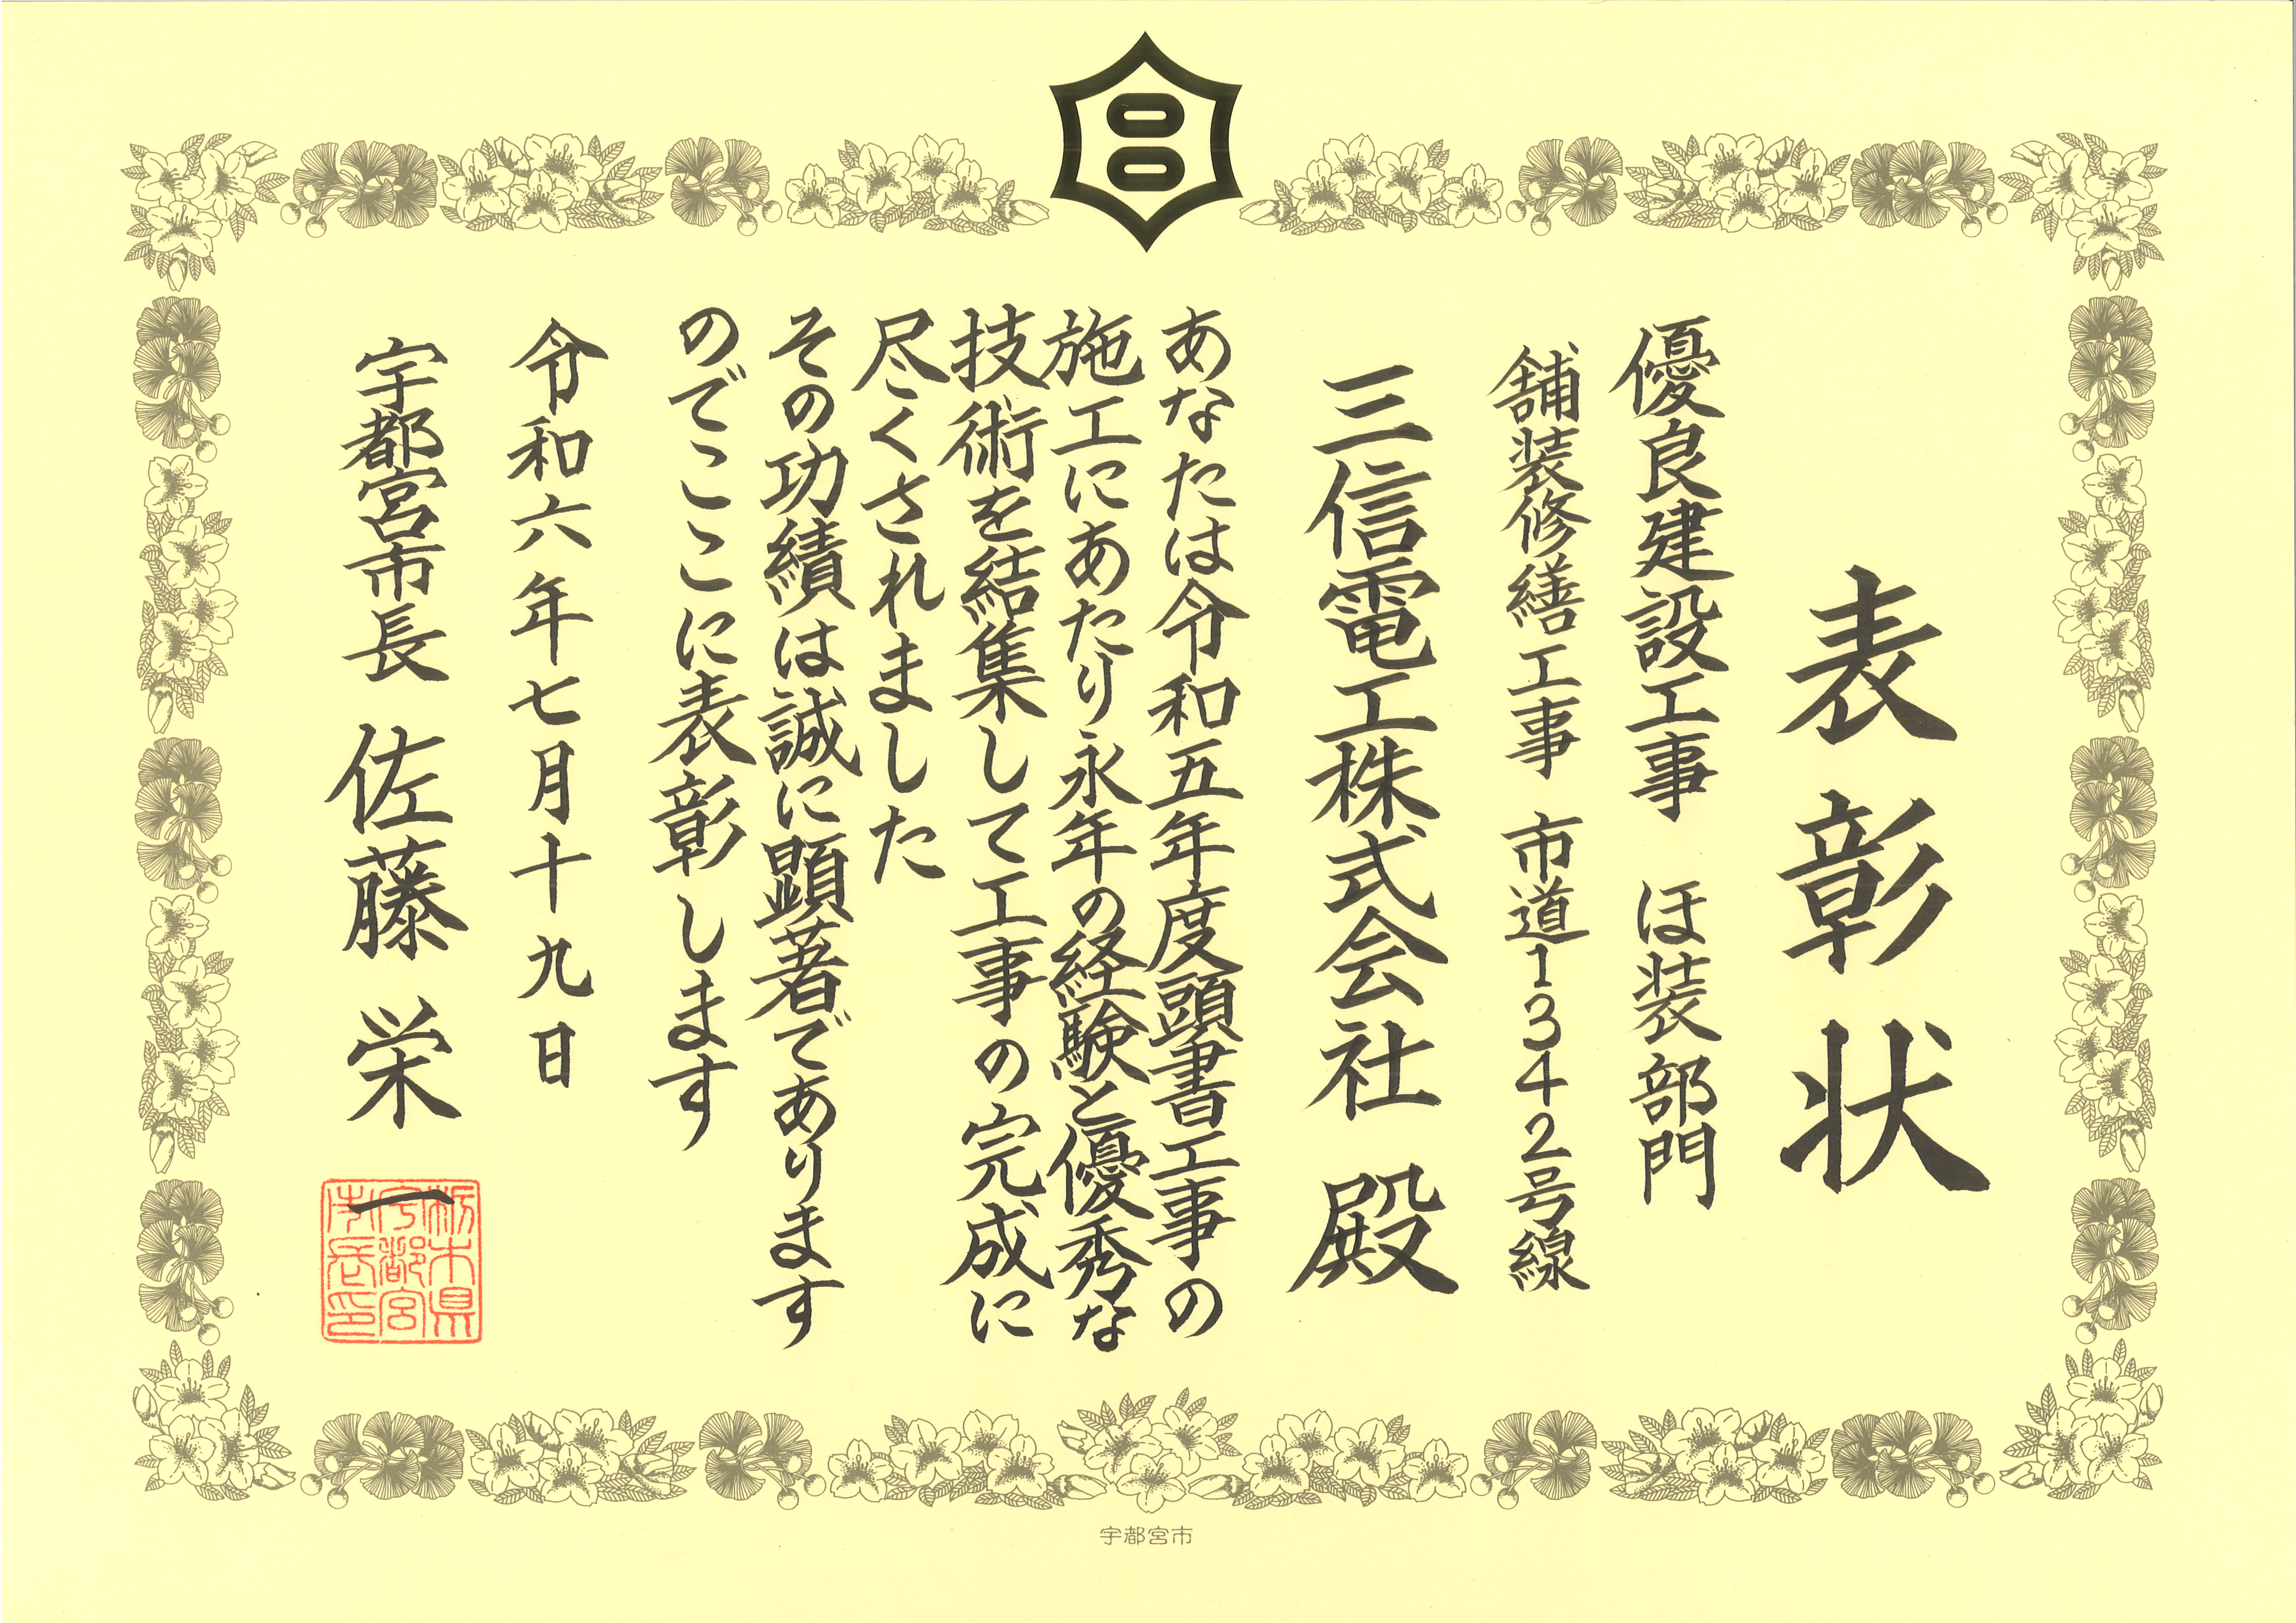 表彰状
優良建設工事 ほ装部門
舗装修繕工事 市道1342号線
三信電工株式会社 殿
あなたは令和五年度頭書工事の
施工にあたり永年の経験と優秀な
技術を結集して工事の完成に
尽くされました
その功績は誠に顕著であります
のでここに表彰します
令和六年七月十九日
宇都宮市長 佐藤栄一
栃木県
宇都宮
市長印
宇都宮市